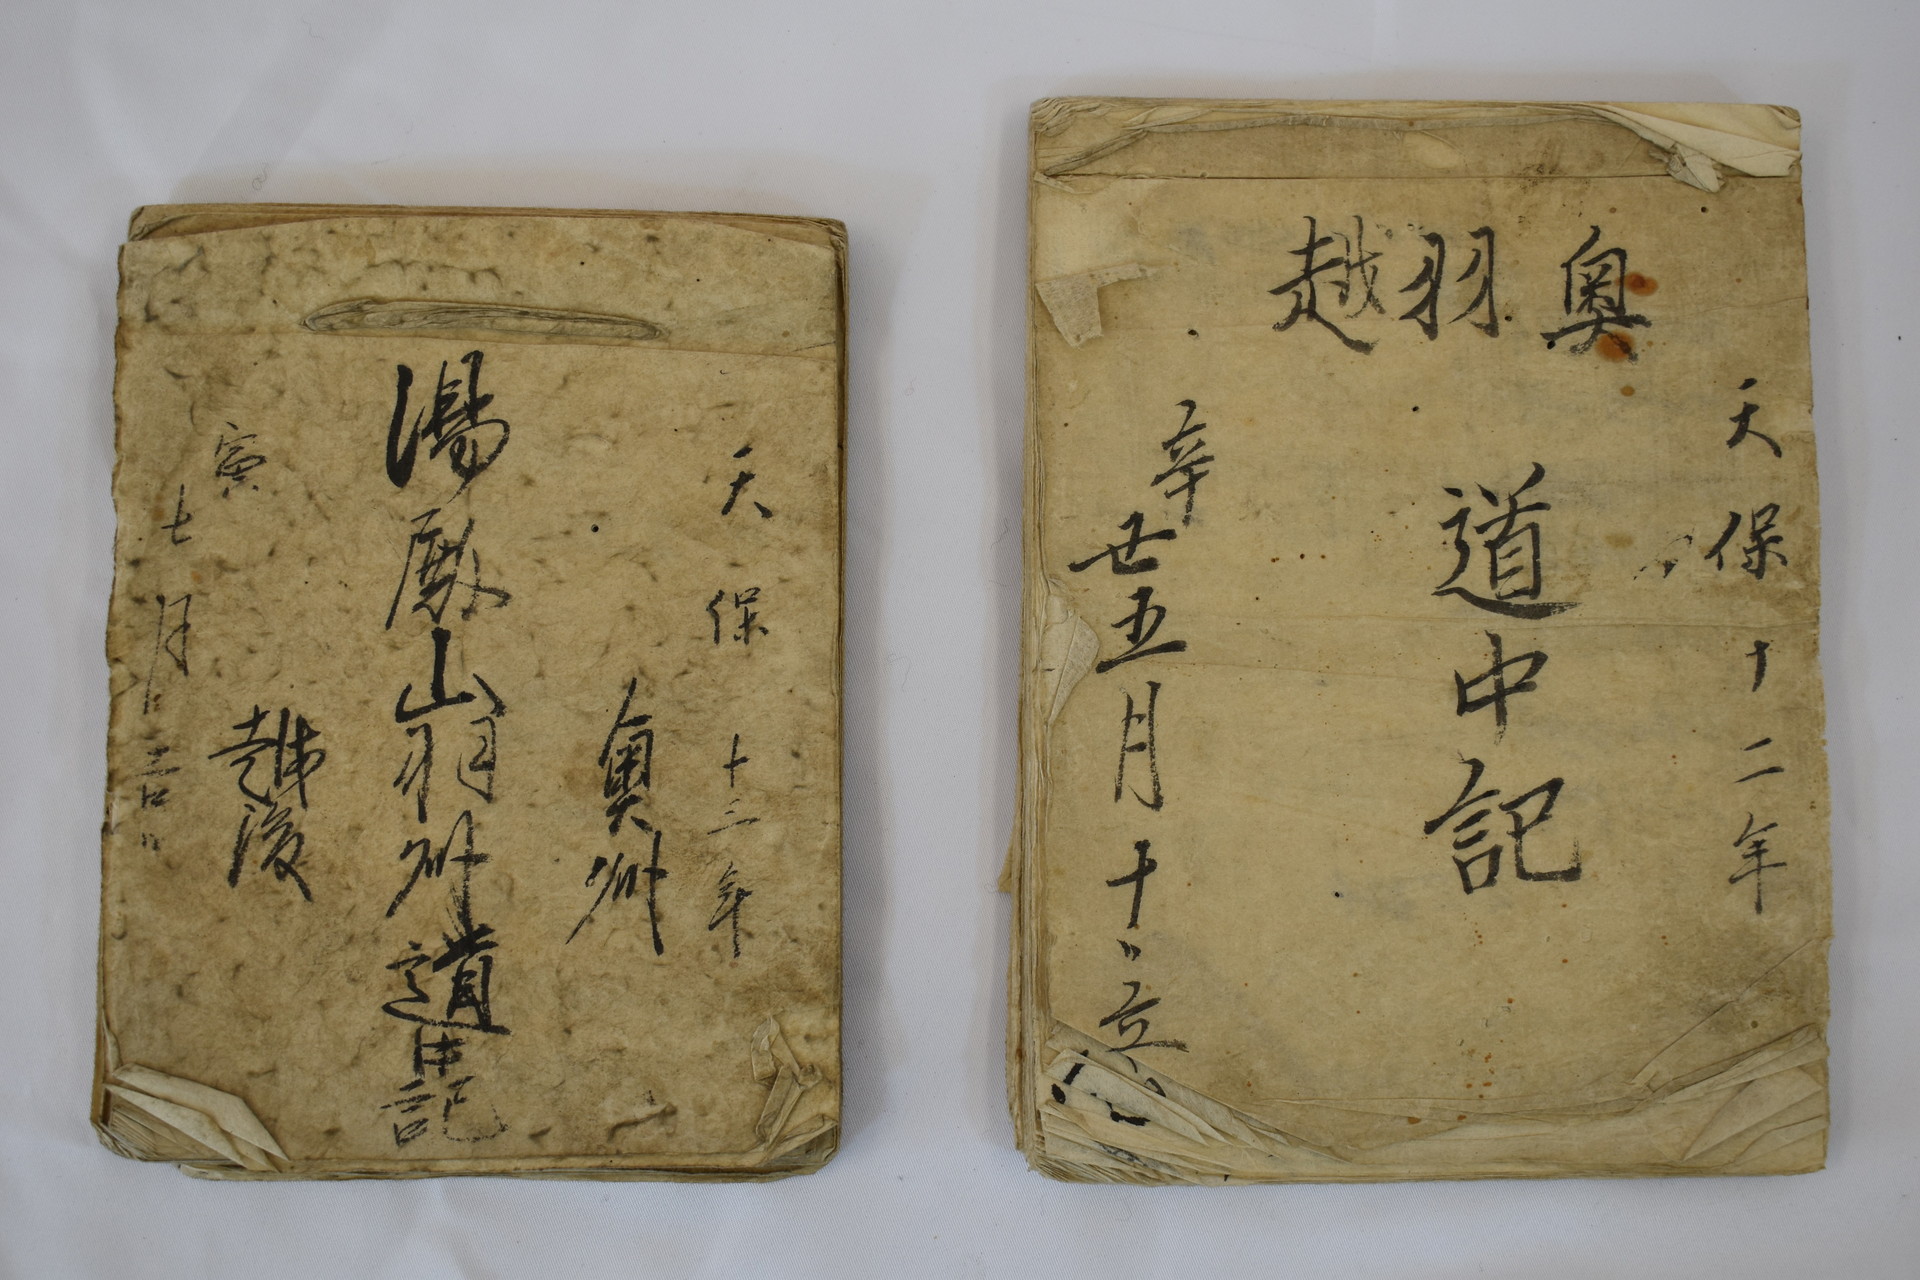 奥羽越
天保十二年
道中記
辛
丑五月十日立
天保十三年
奥州
湯殿山羽州道中記
越後
寅
七月吉日